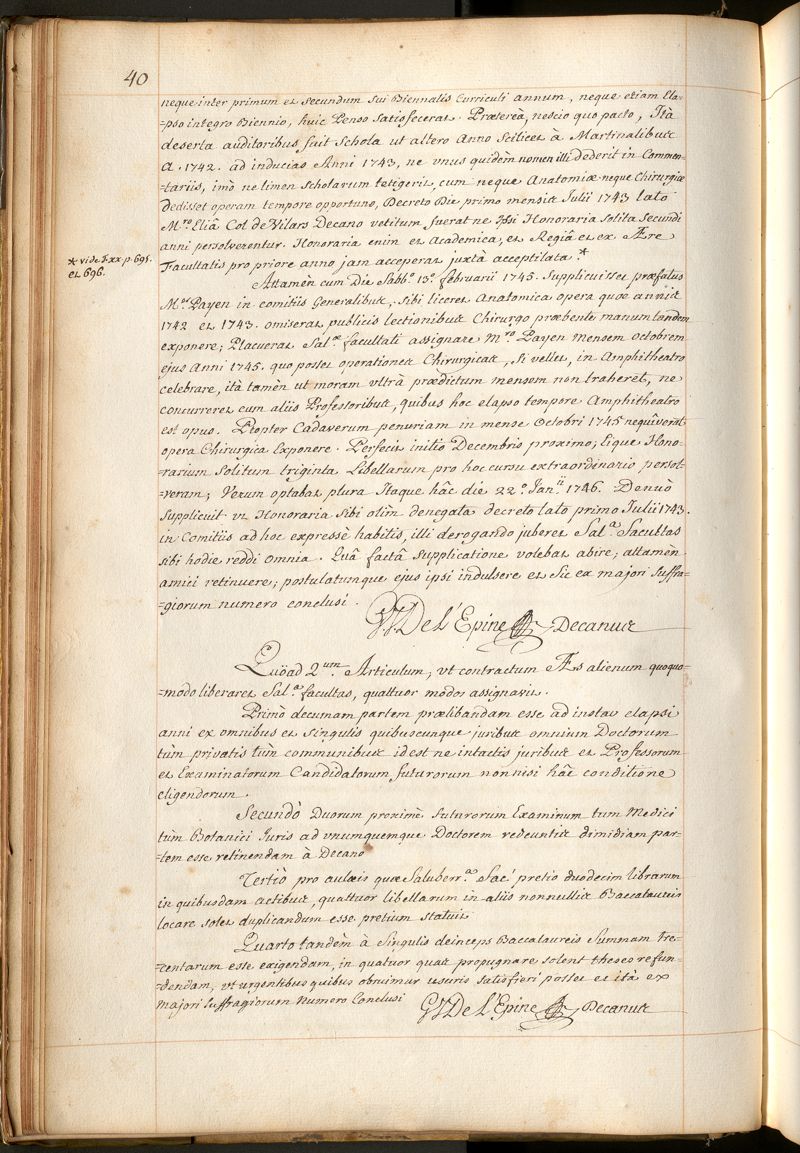 40
neque inter primum et secundum sui Biennalis Curriculi annum, neque etiam Ela-
=pso integro Biennio, huic Penso satisfecerat. Præterèà, nescio quo pacto, Ità
deserta auditoribus fuit Schola ut altero Anno Scilicet à Martinalibus
a. 1742. ad inducias Anni 1743, ne vnus quidèm nomen illi dederit in Commen-
=tariis, imò ne limen scholarum tetigerit, cum neque Anatomiæ neque Chirurgiæ
dedisset operam tempore opportuno, Decreto Die primo mensis Julii 1743 lato
M.ro Eliâ Col de Vilars Decano vetitum fuerat ne Ipsi Honoraria solita secundi
anni persolverentur. Honoraria enim et Academica, et Regia et ex Ære
Facultatis pro priore anno jam acceperat juxtà acceptilata.*
* vide T. xx. p. 695.
et 696.
Attamèn cum Die Sabb.° 13.° februarii 1745. Supplicuisset præfatus
M.er Payen in comitiis Generalibus, sibi liceret Anatomica opera quæ annis
1742 et 1743. omiserat publicis lectionibus Chirurgo præbente manum tandem
exponere; Placuerat Sal.æ facultati assignare M.ro Payen mensem octobrem
ejus Anni 1745. quo posset operationes Chirurgicas, si vellet, in Amphitheatro
celebrare, ità tamèn ut moram vltrà prædictum mensem non traheret, ne
concurreret cum aliis Professoribus, quibus hoc elapso tempore Amphitheatro
est opus. Propter Cadaverum penuriam in mense Octobri 1745 nequiverat
opera Chirurgica Exponere. Perfecit initio Decembris proximo; Eique Hono-
=rarium Solitum triginta Libellarum pro hoc cursu extraordinario persol-
=veram; Verum optabat plura Itaque hâc die 22.° Jan.ii 1746. Denuò
Supplicuit vt Honoraria sibi olim denegata decreto lato primo Julii 1743.
in Comitiis ad hoc expressè habitis, illi derogando juberet Sal.a Facultas
sibi hodie reddi omnia. Quâ factâ Supplicatione volebat abire; attamèn
amici retinuere; postulatumque ejus ipsi indulsere et Sic ex majori Suffra-
=giorum numero conclusi.
GJ De L'Epine Decanus
Quöad 2.um Articulum, vt contractum Æs alienum quoquo-
=modo liberaret Sal.a facultas, quattuor modos assignavit.
Primò decumam partem prælibandam esse ad instar elapsi
anni ex omnibus et singulis quibuscunque juribus omnium Doctorum
tùm privatis tùm communibus id est ne intactis juribus et Professorum
et Examinatorum Candidatorum futurorum nonnisi hâc conditione
eligendorum.
Secundò Duorum proximè futurorum Examinum tum Medici
tùm Botanici Juris ad vnumquemque Doctorem redeuntis dimidiam par-
=tem esse retinendam à Decano
Tertiò pro aulæis quæ Saluberr.a Fac.s pretio duodecim librarum
in quibusdam actibus, quattuor libellarum in aliis nonnullis Baccalaureis
locare solet duplicandum esse pretium statuit
Quarto tandèm à Singulis deinceps Baccalaureis Summam Tre-
=centarum esse exigendam, in quatuor quas propugnare solent theses refun-
=dendam, vt urgentibus quibus obruimur usuris satisfieri posset et ità ex
majori suffragiorum Numero Conclusi
GJ De L'Epine Decanus